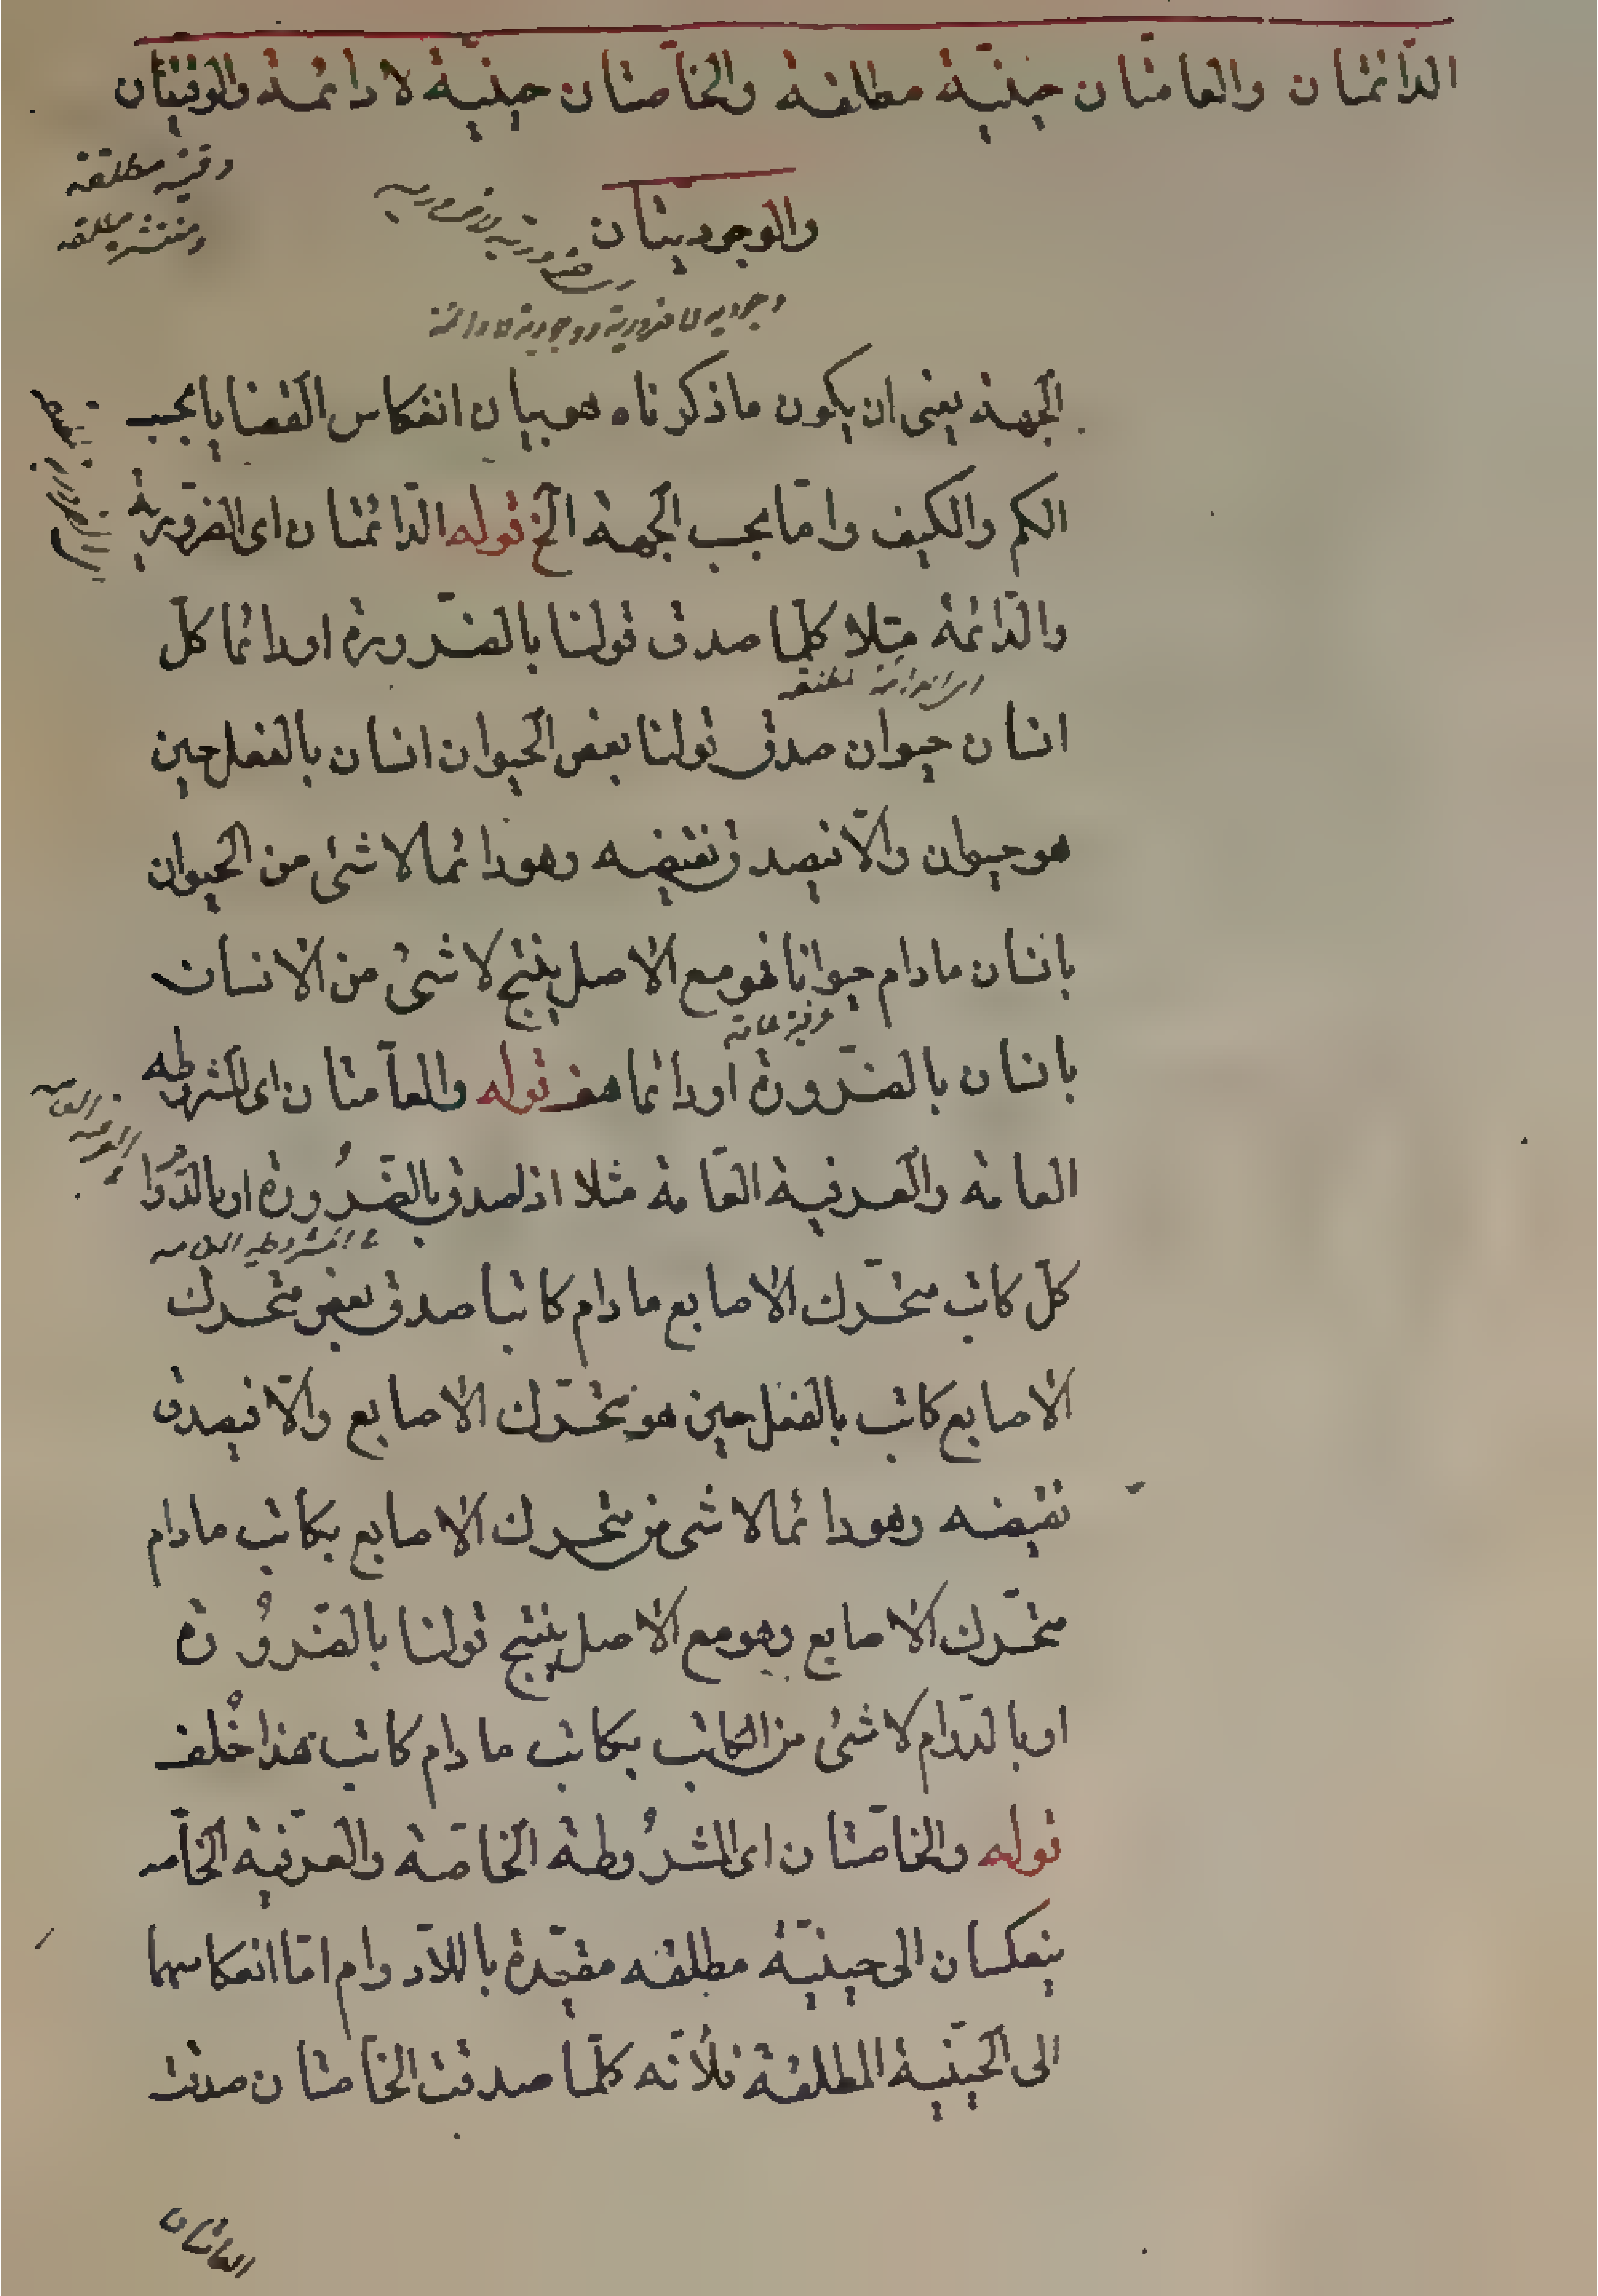 الدّائمتان والعامتان حينيّة مطلقة والخاصّتان حينيّة لا دائمة والوقتيتان
وقتيه مطلقه
ومنتشره مطلقه
والوجوديتان
وجوديه لا ضرورية ووجودية لا دائمة
الجهة يعنى ان يكون ماذكرناه هو بيان انعكاس القضايا بحسب
الكم والكيف وامّا بحسب الجهة الخ قوله الدّائمتان اى الضرورية
والدّائمة مثلا كلّما صدق قولنا بالضّرورة او دائما كلّ
انسان حيوان صدق قولنا بعض الحيوان انسان بالفعل حين
هو حيوان والّا فيصدق نقيضه وهو دائما لا شئ من الحيوان
بانسان مادام حيوانا فهو مع الاصل ينتج لا شئ من الانسان
عرفية عامة
بانسان بالضّرورة او دائما هف قوله والعامّتان اى المشروطه
والعرفيه العامه
العامة والعرفية العامّة مثلا اذا صدق بالضّرورة او بالدّوا
المشروطه العامه
كلّ كاتب متحرّك الاصابع مادام كاتبا صدق بعض متحرك
الاصابع كاتب بالفعل حين هو متحرّك الاصابع والّا فيصدق
نقيضه وهو دائما لا شى من متحرك الاصابع بكاتب مادام
متحرّك الاصابع وهو مع الاصل ينتج قولنا بالضّرورة
او بالدّوام لا شئ من الكاتب بكاتب مادام كاتب هذا خُلف
قوله والخاصّتان اى المشروطة الخاصّة والعرفية الخاصه
ينعكسان الى حينيّة مطلقه مقيّدة باللّادوام امّا انعكاسهما
الى الحينية المطلقة فلأنّه كلّما صدقت الخاصّتان صدقت
العامتان